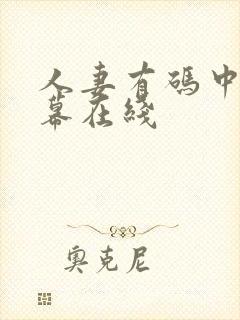 人妻有碼中
幕在綫
奧克尼